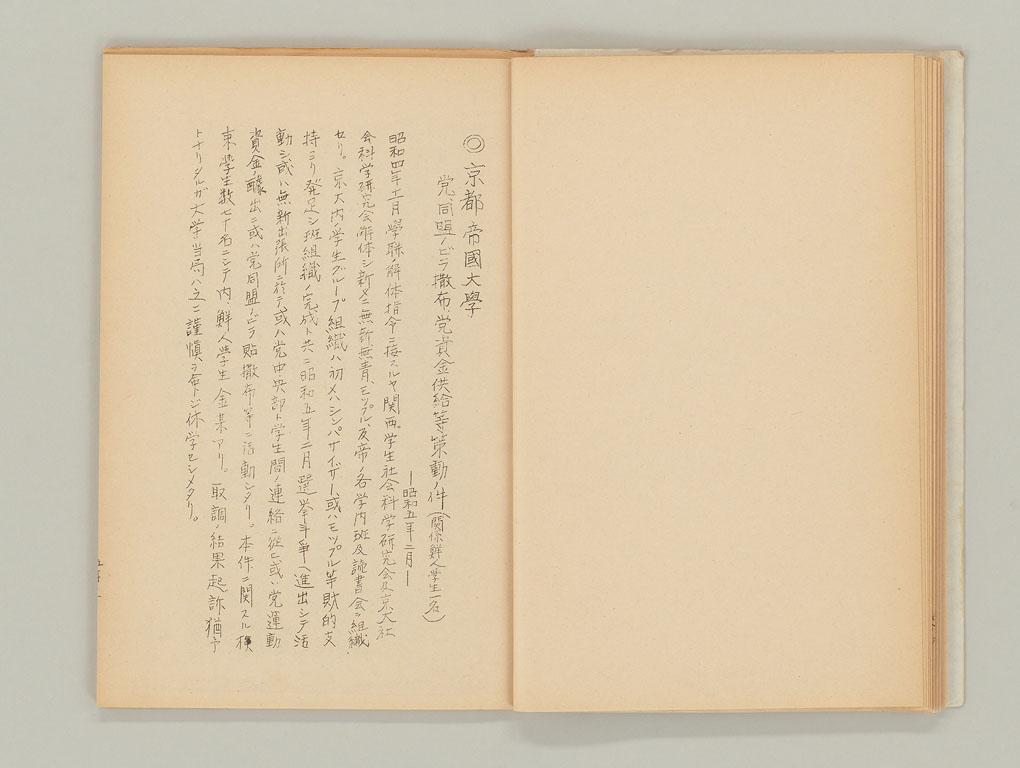 ◎京都帝國大學
党同盟ノビラ撒布、党資金供給等策動ノ件(関係鮮人学生一名)
―昭和五年二月―
昭和四年十一月學聯ノ解体指令ニ接スルヤ関西学生社会科学研究会及京大社
会科学研究会解体シ新メニ無新、無青、モップル、反帝ノ各学内班及読書会ヲ組織
セリ。京大内ノ学生グループ組織ハ初メハシンパサイザー或ハモップル等財的支
持ヨリ発足シ班組織ノ完成ト共ニ昭和五年二月選挙斗争ヘ進出シテ活
動シ或ハ無新出張所ニ於テ或ハ党中央部ト学生間ノ連絡ニ従ヒ或ハ党運動
資金ノ醵出ニ或ハ党同盟ノビラ貼撒布等ニ活動シタリ。本件ニ関スル検
束學生数七十名ニシテ内、鮮人學生金某アリ。取調ノ結果起訴猶予
トナリタルガ大学当局ハ之ニ謹慎ヲ命ジ休学セシメタリ。